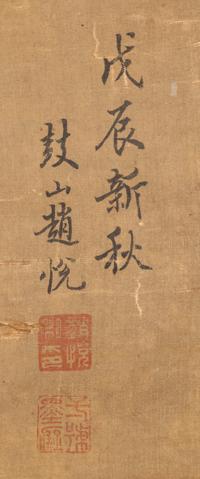 戊辰新秋
鼓山趙悅